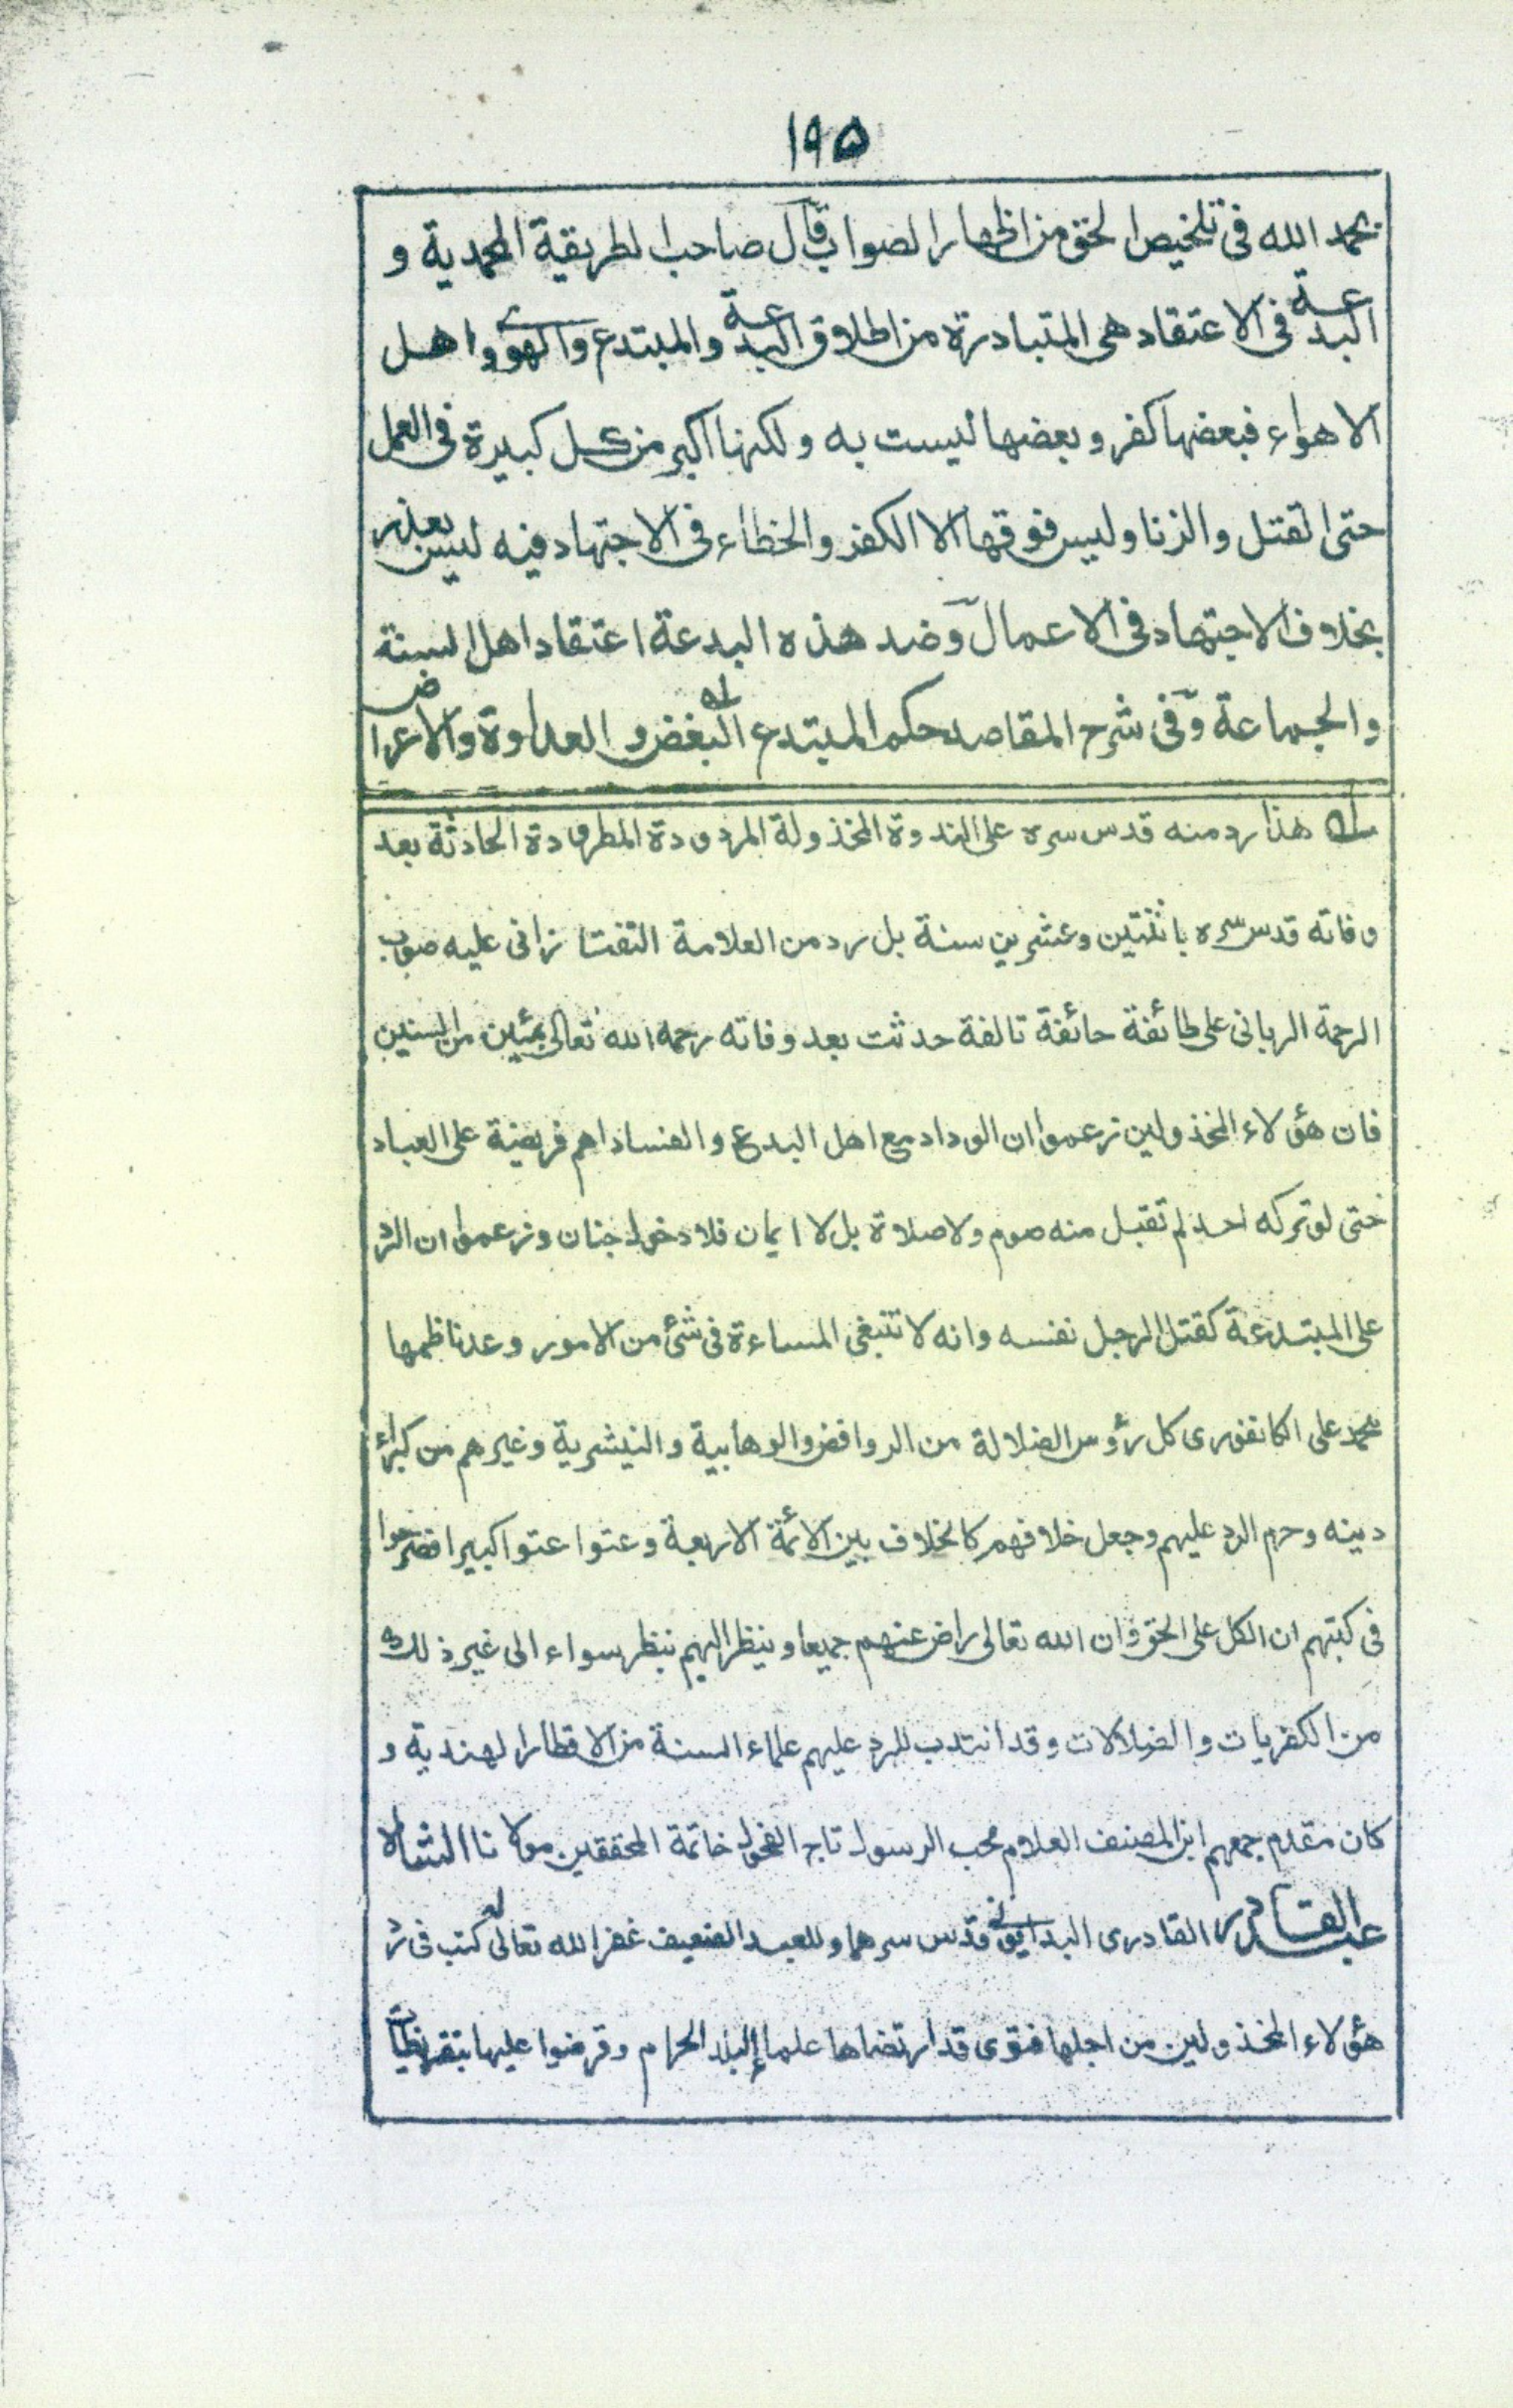 ۱۹۵
بحمد الله فی تلخیص الحق من اظهار الصواب قال صاحب الطریقة المحمدیة و
البدعة فی الاعتقاد هی المتبادرة من اطلاق البدعة والمبتدع والهوی واهل
الاهواء فبعضها کفر و بعضها لیست به ولکنها اکبر من کل کبیرة فی العمل
حتی القتل والزنا ولیس فوقها الا الکفر والخطاء فی الاجتهاد فیه لیس بعذر
بخلاف الاجتهاد فی الاعمال وضد هذه البدعة اعتقاد اهل السنة
والجماعة وفی شرح المقاصد حکم المبتدع البغض والعداوة والاعراض
له هذا رد منه قدس سره علی الندوة المخذولة المردودة المطرودة الحادثة بعد
وفاته قدس سره باثنتین وعشرین سنة بل رد من العلامة التفتازانی علیه صوب
الرحمة الربانی علی طائفة حائفة تالفة حدثت بعد وفاته رحمه الله تعالی بمئین من السنین
فان هؤلاء المخذولین زعموا ان الوداد مع اهل البدع والفساد اهم فریضة علی العباد
حتی لو ترکه احد لم تقبل منه صوم ولا صلاة بل لا ایمان فلا دخول جنان وزعموا ان الرد
علی المبتدعة کقتل الرجل نفسه وانه لا تنبغی المساءة فی شیٔ من الامور وعد ناظمها
محمد علی الکانفوری کل رؤس الضلالة من الروافض والوهابیة والنیشریة وغیرهم من کبراء
دینه وحرم الرد علیهم وجعل خلافهم کالخلاف بین الائمة الاربعة وعتوا عتوا کبیرا فصرحوا
فی کتبهم ان الکل علی الحق وان الله تعالی راض عنهم جمیعا وینظر الیهم بنظر سواء الی غیر ذلک
من الکفریات والضلالات وقد انتدب للرد علیهم علماء السنة من الاقطار الهندیة و
کان مقدم جمعهم ابن المصنف العلام محب الرسول تاج الفحول خاتمة المحققین مولانا الشاه
عبد القادر القادری البدایونی قدس سرهما وللعبد الضعیف غفر الله تعالی له کتب فی رد
هؤلاء المخذولین من اجلها فتوی قد ارتضاها علماء البلد الحرام وقرضوا علیها بتقریظات